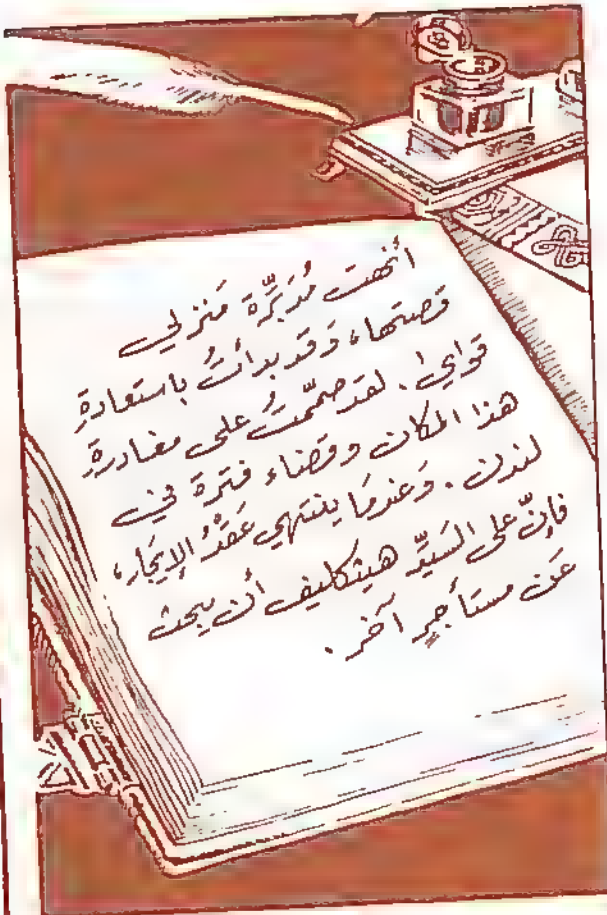 أنهت مُدَبِّرَة مَنزلي
قصتها، وَقد بدأتُ باستعادةِ
قواي. لقد صمّمتُ على مغادرةِ
هذا المكان وقضاء فترة في
لندن. وَعندمَا ينتهي عَقْدُ الإيجَار،
فإنّ على السَيِّد هيثكليف أن يبحث
عَن مستأجرٍ آخر.